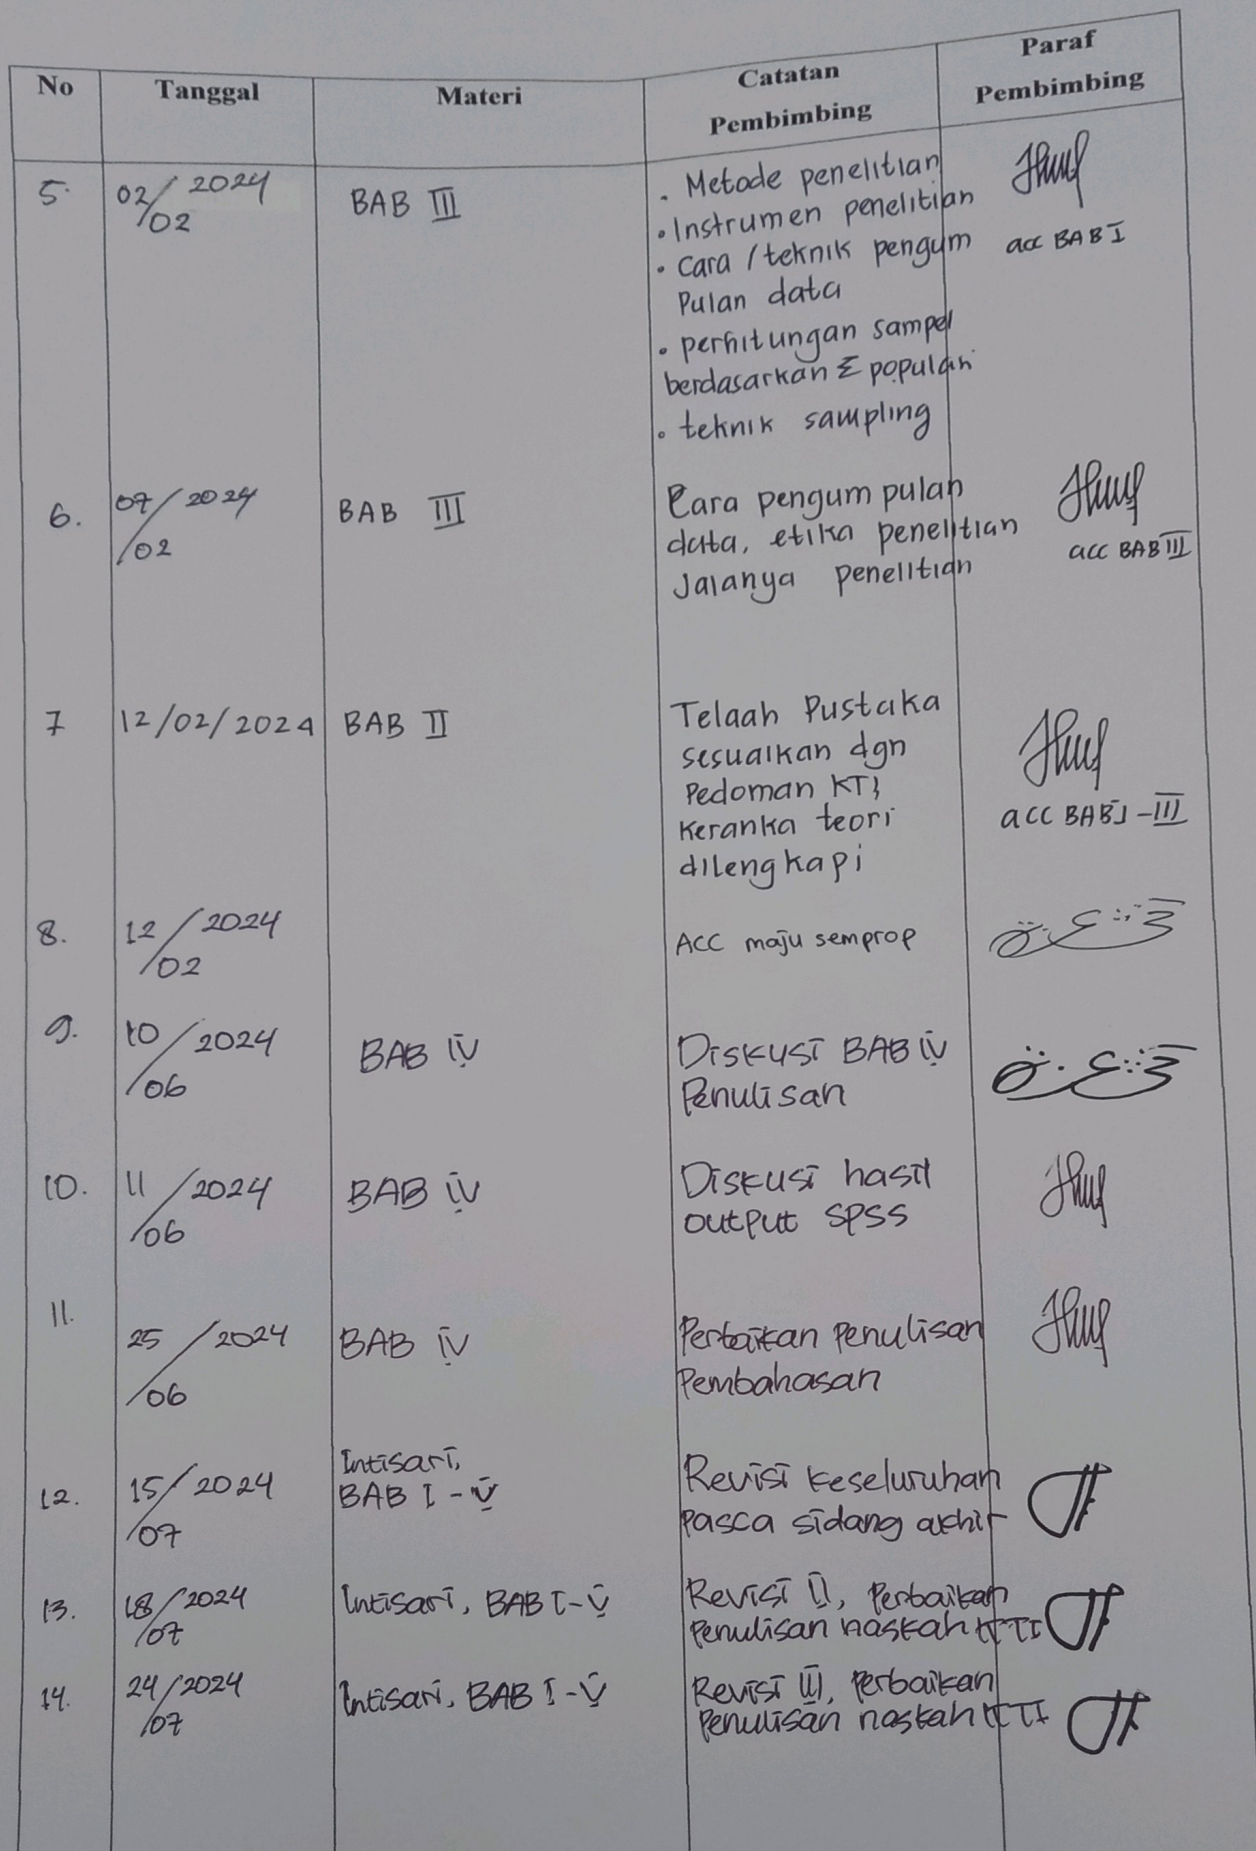 No Tanggal Materi Catatan Pembimbing Paraf Pembimbing
5. 02/02 2024 BAB III
• Metode penelitian
• Instrumen penelitian
• Cara / teknik pengum
Pulan data
• perhitungan sampel
berdasarkan Σ populasi
• teknik sampling
acc BAB I
6. 07/02 2024 BAB III
Cara pengumpulan
data, etika penelitian
Jalanya penelitian
acc BAB III
7 12/02/2024 BAB II
Telaah Pustaka
sesuaikan dgn
Pedoman KTI
keranka teori
dilengkapi
acc BAB I - III
8. 12/02 2024 ACC maju semprop
9. 10/06 2024 BAB IV
Diskusi BAB IV
Penulisan
10. 11/06 2024 BAB IV
Diskusi hasil
output SPSS
11. 25/06 2024 BAB IV
Perbaikan Penulisan
Pembahasan
12. 15/07 2024
Intisari,
BAB I - V
Revisi keseluruhan
pasca sidang akhir
13. 18/07 2024 Intisari, BAB I - V
Revisi II, Perbaikan
Penulisan naskah KTI
14. 24/07 2024 Intisari, BAB I - V
Revisi III, Perbaikan
Penulisan naskah KTI